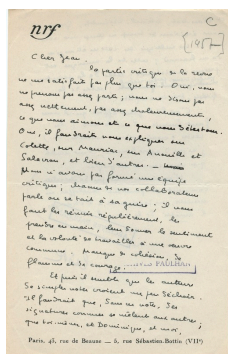 nrf
C
[1957]
Cher Jean.
la partie critique de la revue
ne me satisfait pas plus que toi. Oui, nous
ne prenons pas assez parti ; nous ne disons pas
assez nettement, pas assez chaleureusement,
ce que nous aimons et ce que nous détestons.
Oui, il faudrait nous expliquer sur
Colette, sur Mauriac, sur Anouilh et
Salacrou, et bien d'autres.
Nous n'avons pas formé une équipe
critique ; chacun de nos collaborateurs
parle ou se tait à sa guise ; il nous
faut les réunir régulièrement, les
prendre en main, leur donner le sentiment
et la volonté de travailler à une œuvre
commune. Manque de cohésion, de
flamme et de courage.
PAULHAN
Et puis il semble que les auteurs
de simples notes croient un peu déchoir.
Il faudrait que, dans ces notes, des
signatures connues se mêlent aux autres ;
que toi-même, et Dominique, et moi,
Paris, 43, rue de Beaune — 5, rue Sébastien-Bottin (VIIe)